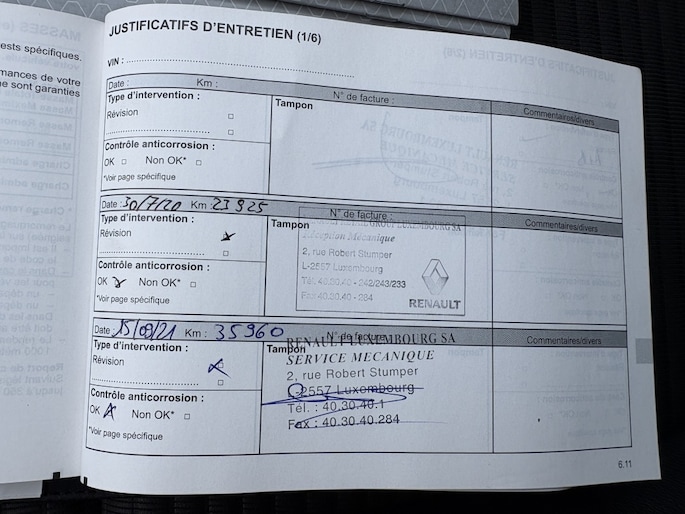 ests spécifiques.
mances de votre
ne sont garanties
JUSTIFICATIFS D'ENTRETIEN (1/6)
VIN :
Date : Km : N° de facture : Commentaires/divers
Type d'intervention : Tampon
Révision
Contrôle anticorrosion :
OK Non OK*
*Voir page spécifique
Date : 30/7/20 Km : 23925 N° de facture : Commentaires/divers
Type d'intervention : Tampon
Révision
Contrôle anticorrosion :
OK Non OK*
*Voir page spécifique
LUXEMBOURG SA
Réception Mécanique
2, rue Robert Stumper
L-2557 Luxembourg
Tél: 40.30.40 - 242/243/233
Fax 40.30.40 - 284
RENAULT
Date : 15/09/21 Km : 35960 N° de facture : Commentaires/divers
Type d'intervention : Tampon
Révision
Contrôle anticorrosion :
OK Non OK*
*Voir page spécifique
RENAULT LUXEMBOURG SA
SERVICE MECANIQUE
2, rue Robert Stumper
L-2557 Luxembourg
Tél. : 40.30.40.1
Fax : 40.30.40.284
6.11